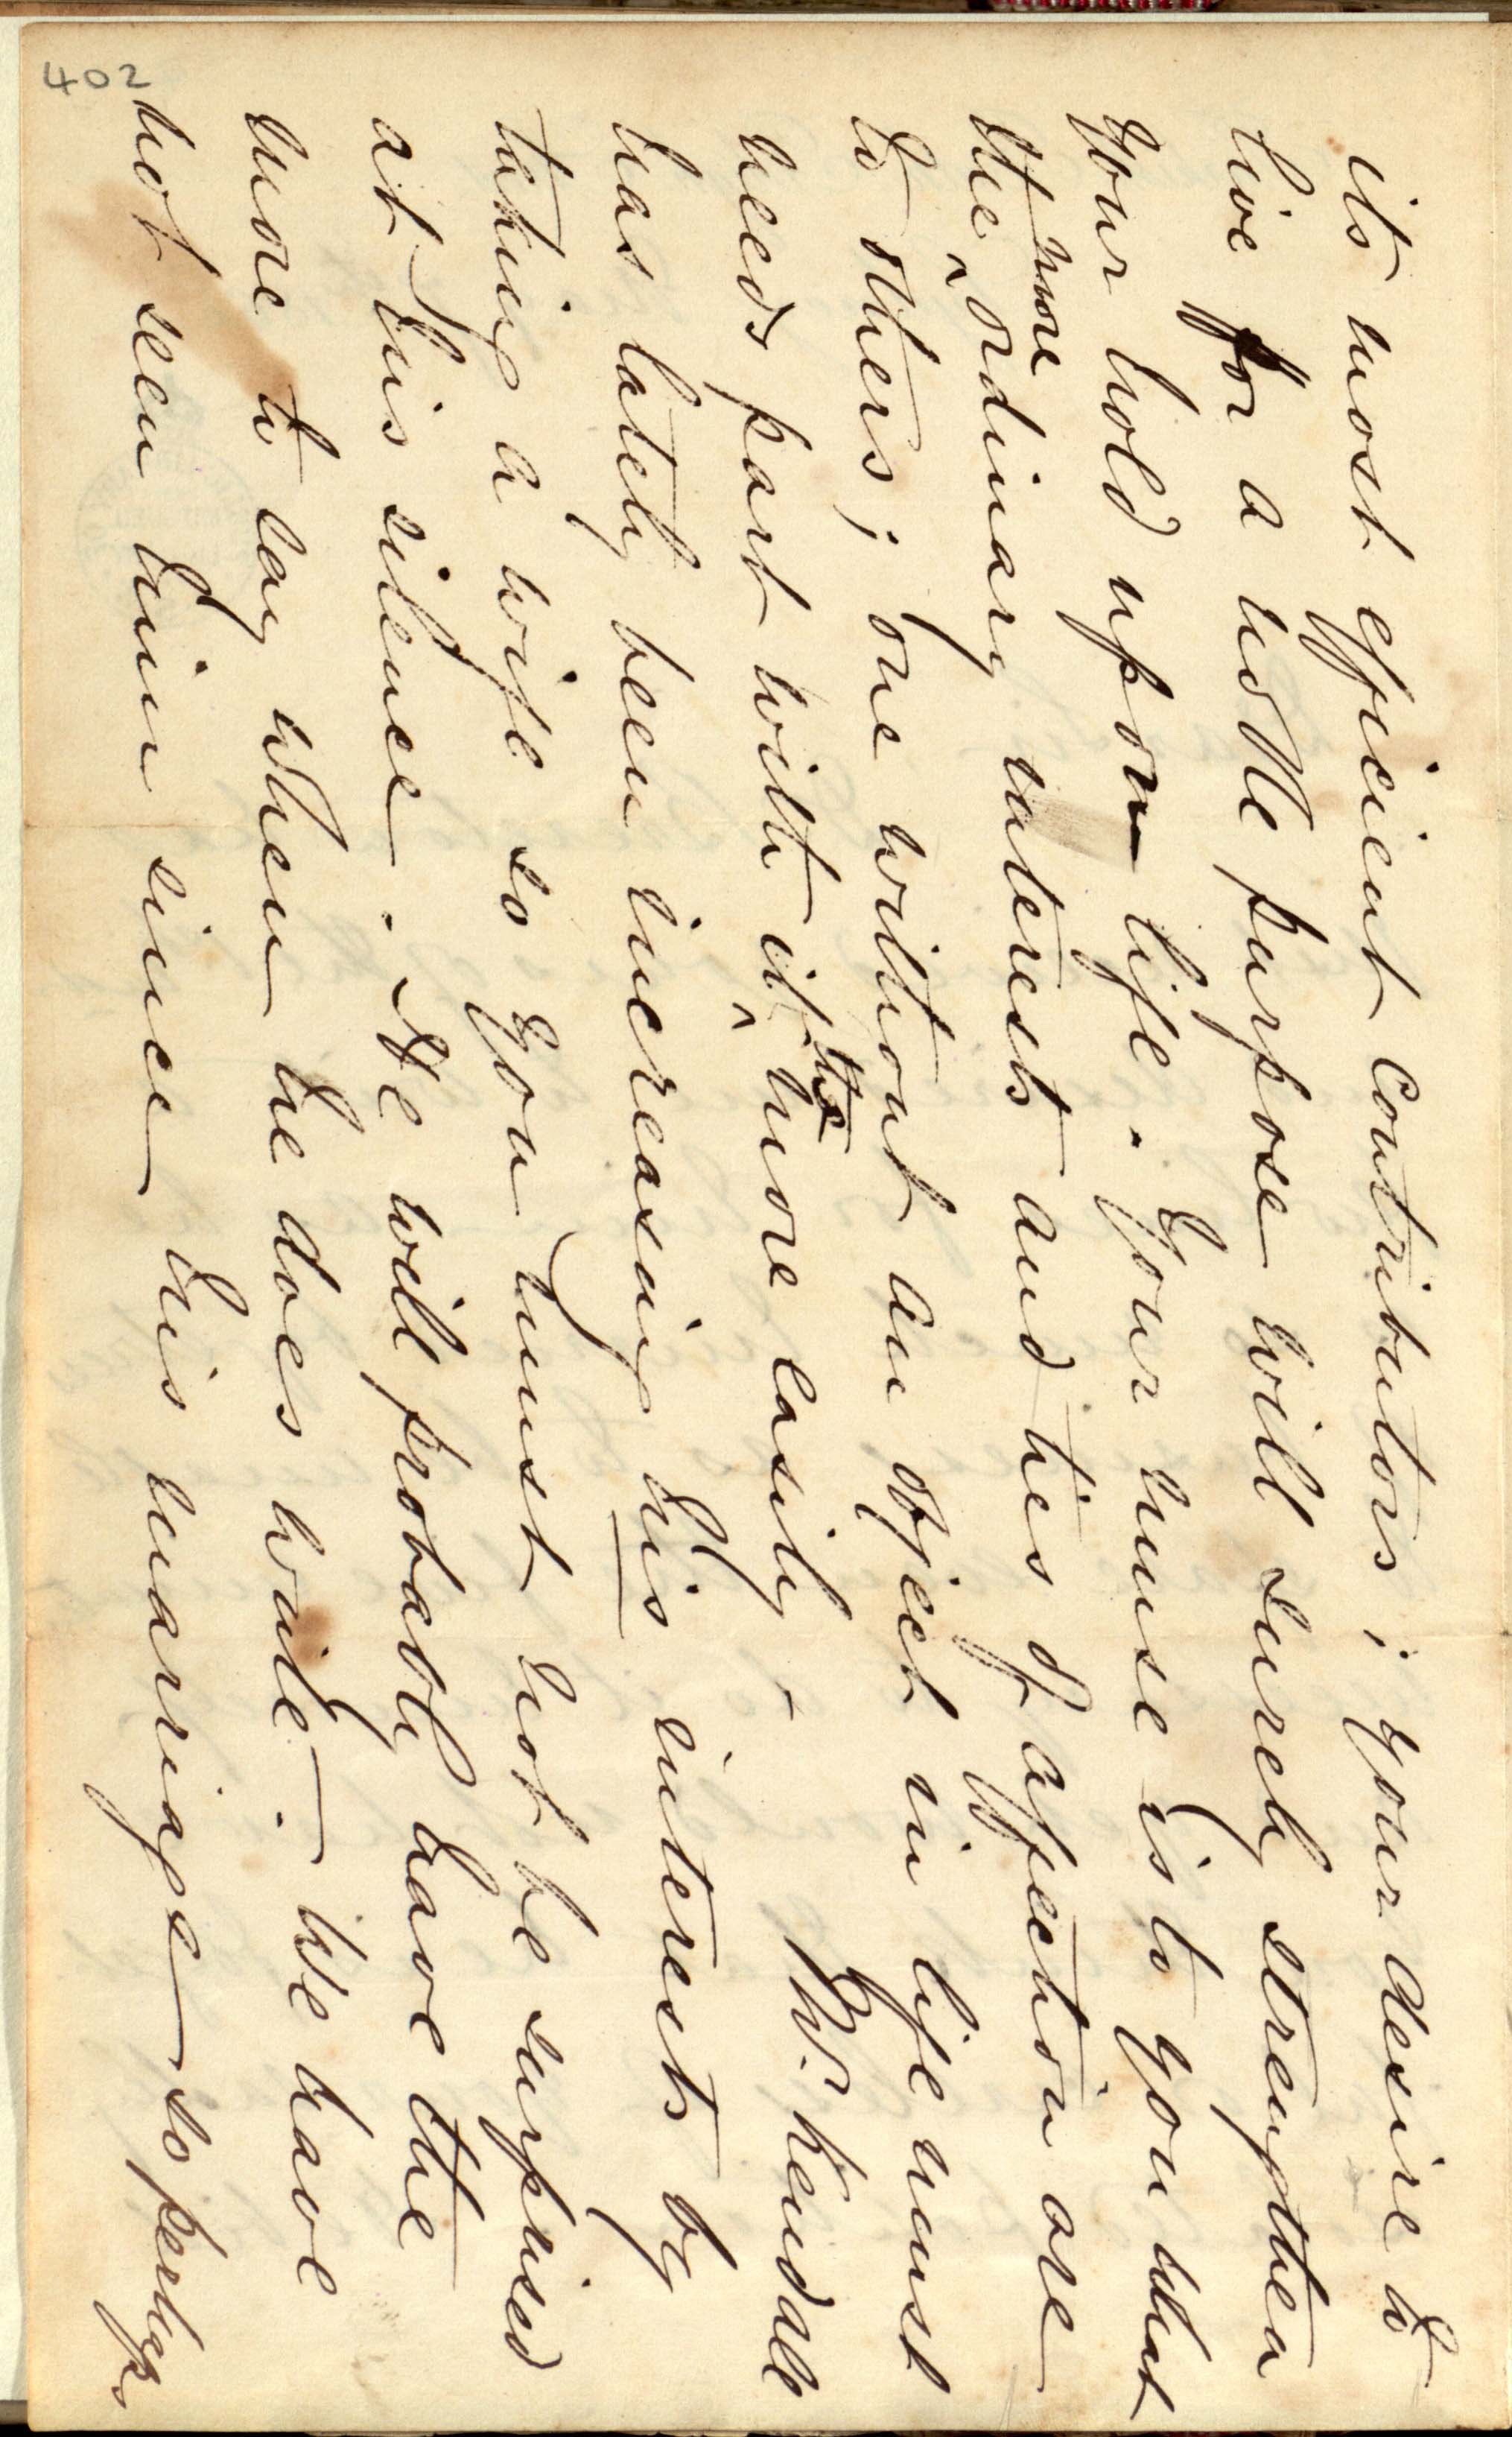 402
its most efficient contributors; your desire to
live for a noble purpose will surely strengthen
your hold upon life. Your muse is to you what
the more ordinary interests and ties of affection are
to others; one without an object in life must
needs part with it the more easily - Mr. Kendall
has lately been increasing his interests by
taking a wife so you must not be surprised
at his silence. He will probably have the
more to say when he does write. We have
not seen him since his marriage so perhaps